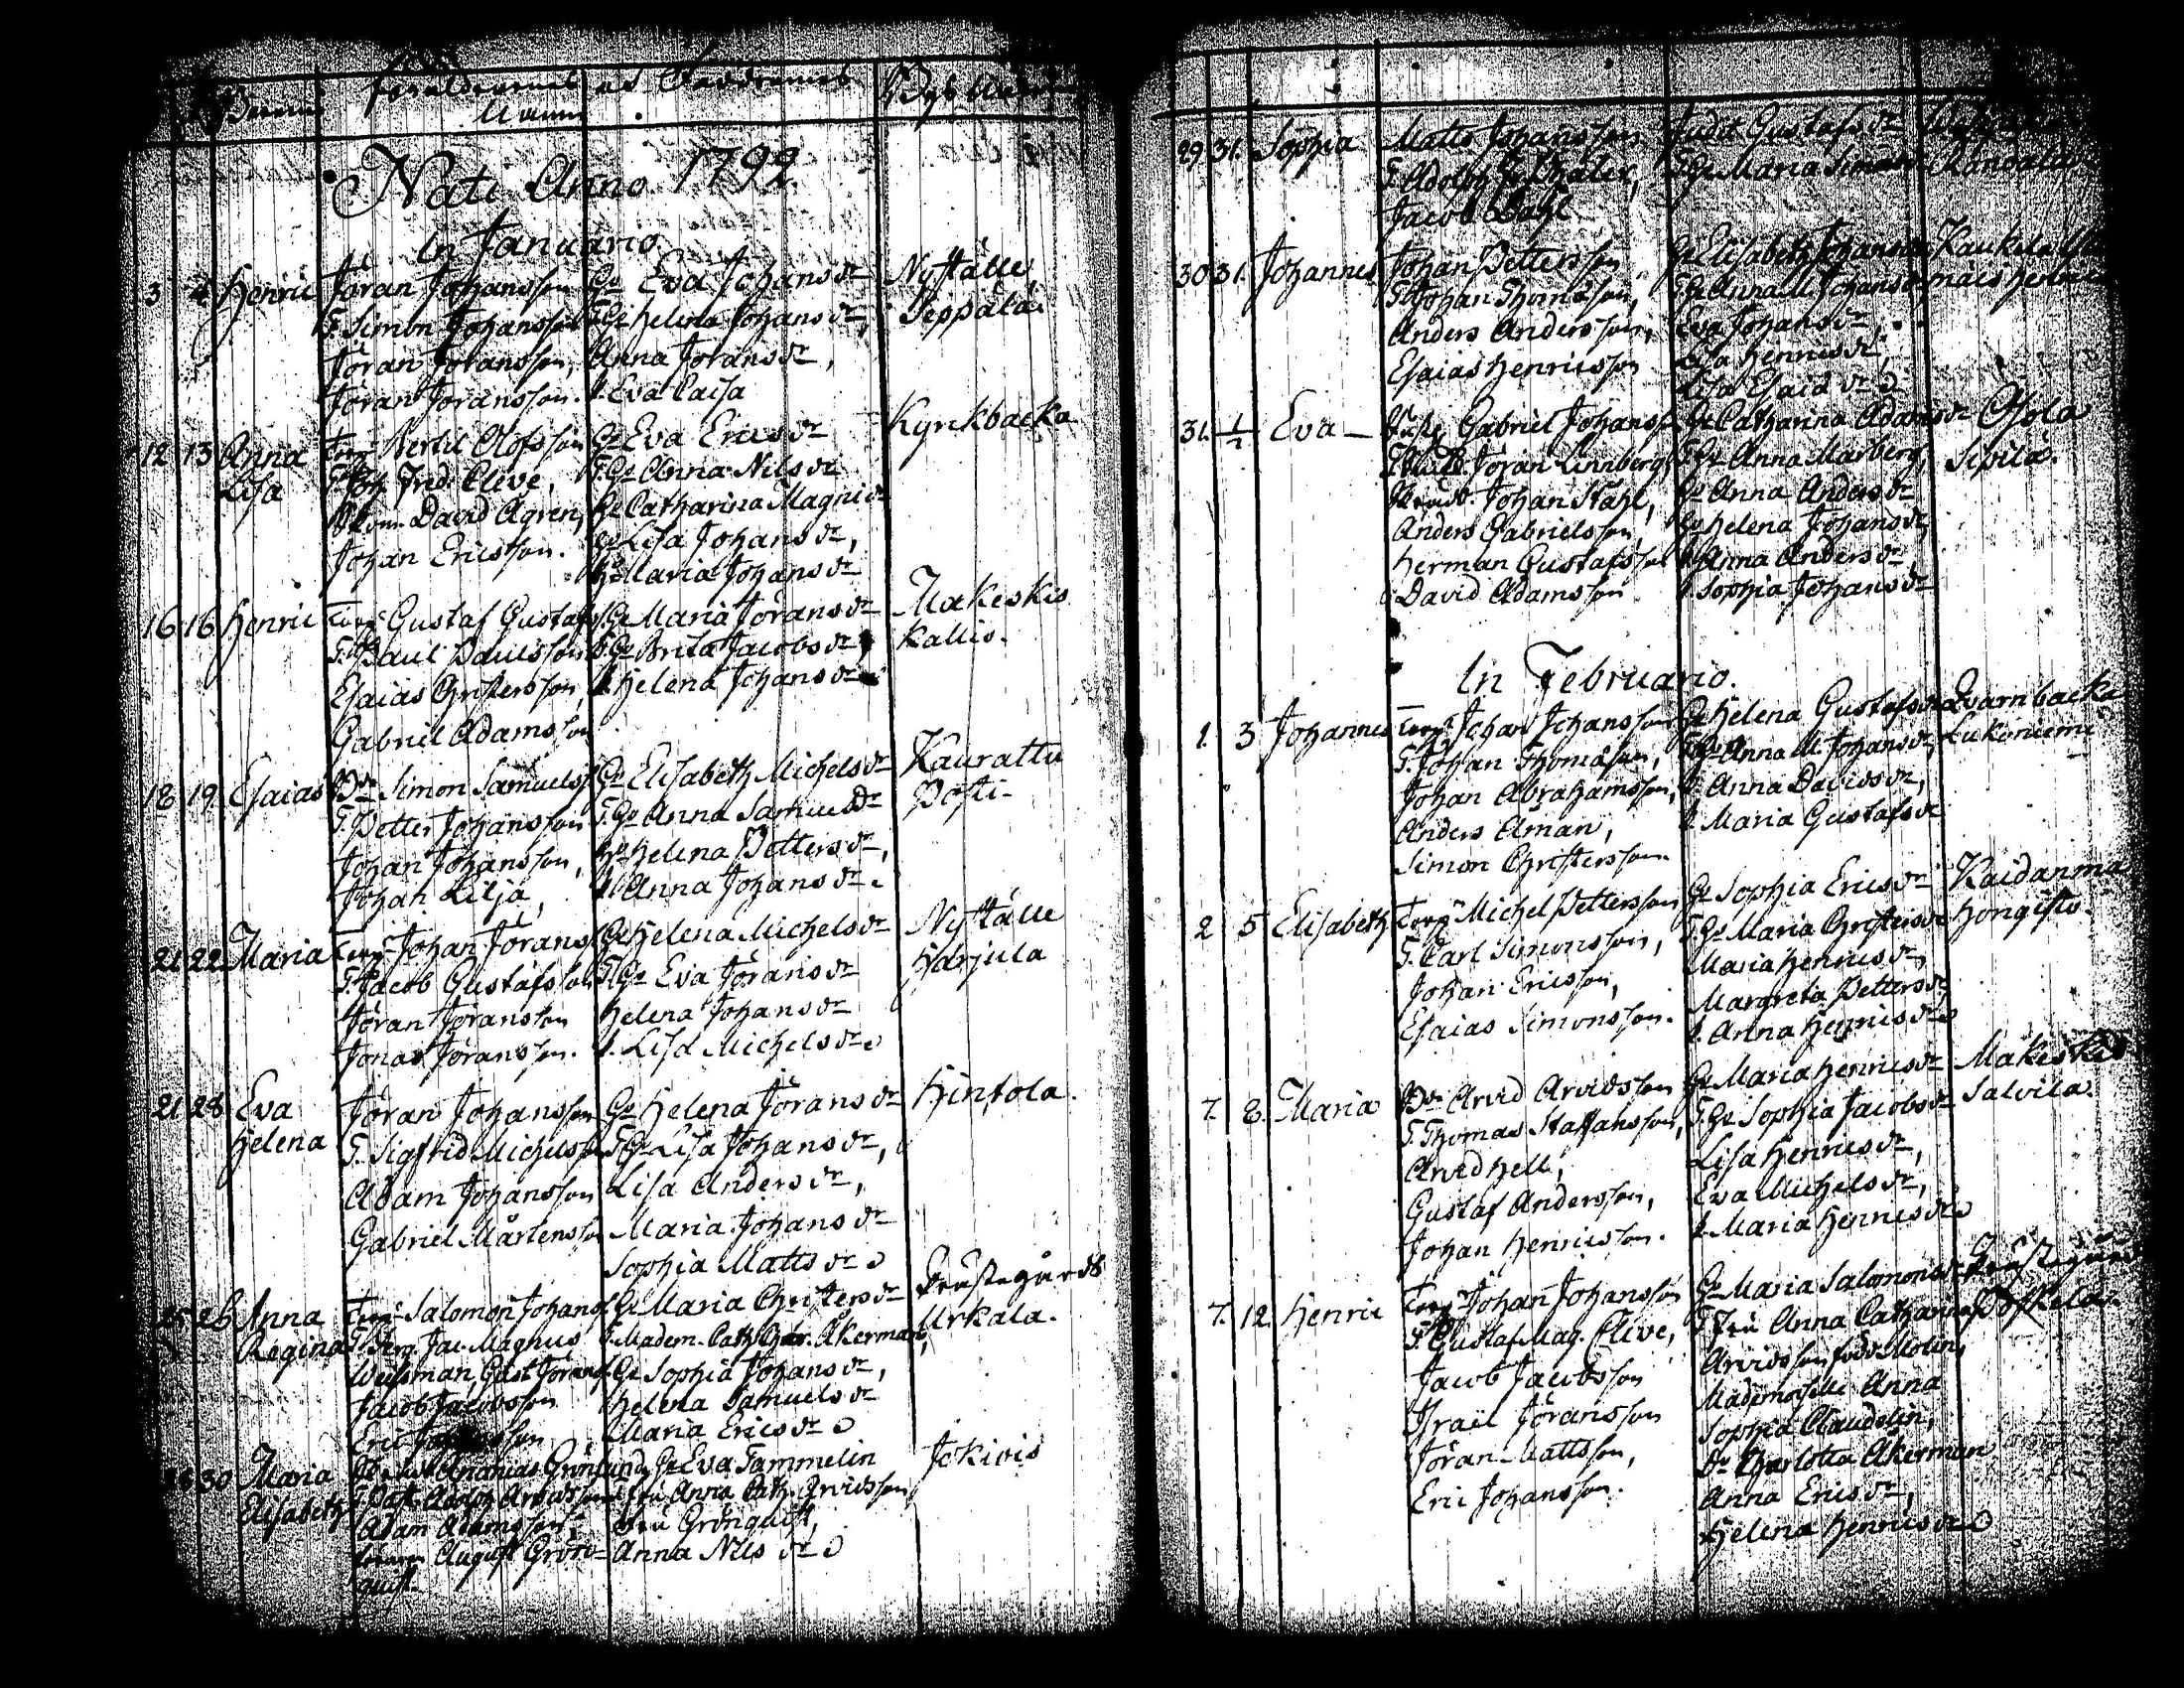 Barnen Föräldrarnas och Faddrarnas Namn
Nati Anno 1792
In Januario.
3 4 Henric Jöran Johansson H:u Eva Johans dr Nyställe
T. Simon Johansson T. H:u Helena Johans dr, Seppälä.
Jöran Jöransson, Anna Jörans dr,
Jöran Jöransson. p. Eva Caisa
12 13 Anna Torp. Bertil Olofsson H:u Eva Erics dr Kyrkbacka
Lisa T. Joh. Fred. Cleve, T. H:u Anna Nils dr
David Agren, H:u Catharina Magni dr
Johan Ericsson. H:u Lisa Johans dr,
H:u Maria Johans dr
16 16 Henric Torp. Gustaf Gustafs. H:u Maria Jörans dr Makeskis
T. Paul Paulsson T. H:u Brita Jacobs dr Kallis.
Esaias Christersson, p. Helena Johans dr
Gabriel Adamsson
18 19 Esaias Bdn Simon Samuels. H:u Elisabeth Michels dr Kaurattu
T. Petter Johansson T. H:u Anna Samuels dr Posti
Johan Johansson, H:u Helena Petters dr,
Johan Lilja, p. Anna Johans dr.
21 22 Maria Torp. Johan Jörans. H:u Helena Michels dr Nyställe
T. Jacob Gustafsson T. H:u Eva Jörans dr Harjula
Jöran Jöransson Helena Johans dr
Jonas Jöransson. p. Lisa Michels dr
21 28 Eva Jöran Johansson H:u Helena Jörans dr Hintola.
Helena T. Sigfrid Michelsson T. H:u Lisa Johans dr,
Adam Johansson Lisa Anders dr,
Gabriel Mårtensson Maria Johans dr
Sophia Matts dr
25 26 Anna Torp. Salomon Johans. H:u Maria Christers dr Prästegårds
Regina T. Jac. Magnus T. Madem. Cath. Char. Åkerman, Urkala.
Weisman, Gust. Jörans. H:u Sophia Johans dr,
Jacob Jacobsson Helena Samuels dr
Eric Maria Erics dr
30 Maria Ananias Grönlund H:u Eva Tammelin Jokiois
Elisabeth T. Adolph Arvidsson Fru Anna Cath. Arvidsson
Adam Adamsson, Fru Grönquist,
August Grön= Anna Nils dr
quist.
29 31. Sophia Matts Johansson Judit Gustafs dr
T. Adolph Fr. T. H:u Maria Simons
Jacob Dahl
30 31. Johannes Johan Pettersson H:u Elisabeth Johans dr Kaukela
T. Johan Thomasson, T. H:u Anna M. Johans dr
Anders Andersson, Eva Johans dr,
Esaias Henricsson Lisa Henrics dr,
Lisa Esaiæ dr
31. 1/2 Eva Gabriel Johanss. H:u Catharina Adams dr Osola
T. Jöran Linnberg, T. H:u Anna Marberg, Sipilä.
Johan Ståhl, H:u Anna Anders dr
Anders Gabrielsson, H:u Helena Johans dr,
Herman Gustafsson p. Anna Anders dr
David Adamsson p. Sophia Johans dr
In Februario.
1. 3 Johannes Torp. Johan Johansson H:u Helena Gustafs dr Qvarnbacka
T. Johan Thomasson, T. H:u Anna M. Johans dr, Lukoniemi
Johan Abrahamsson, p. Anna Davids dr,
Anders Åman, p. Maria Gustafs dr
Simon Christersson.
2 5 Elisabeth Torp. Michel Pettersson H:u Sophia Erics dr Kaidanma
T. Carl Simonsson, T. H:u Maria Christers dr Hongisto.
Johan Ericsson, Maria Henrics dr,
Esaias Simonsson. Margreta Petters dr,
p. Anna Henrics dr
7. 8. Maria Bdn Arvid Arvidsson H:u Maria Henrics dr Makeskis
T. Thomas Staffansson, T. H:u Sophia Jacobs dr Salvila.
Arvid Hell, Lisa Henrics dr,
Gustaf Andersson, Eva Michels dr,
Johan Henricsson. p. Maria Henrics dr
7. 12. Henric Torp. Johan Johansson H:u Maria Salomons dr Prästegårds
T. Gustaf Mag. Cleve, T. Fru Anna Catharina
Jacob Jacobsson Arvidsson född Molin,
Israel Jöransson Mademoiselle Anna
Jöran Mattsson, Sophia Claudelin,
Eric Johansson. Dr Charlotta Åkerman
Anna Erics dr,
Helena Henrics dr